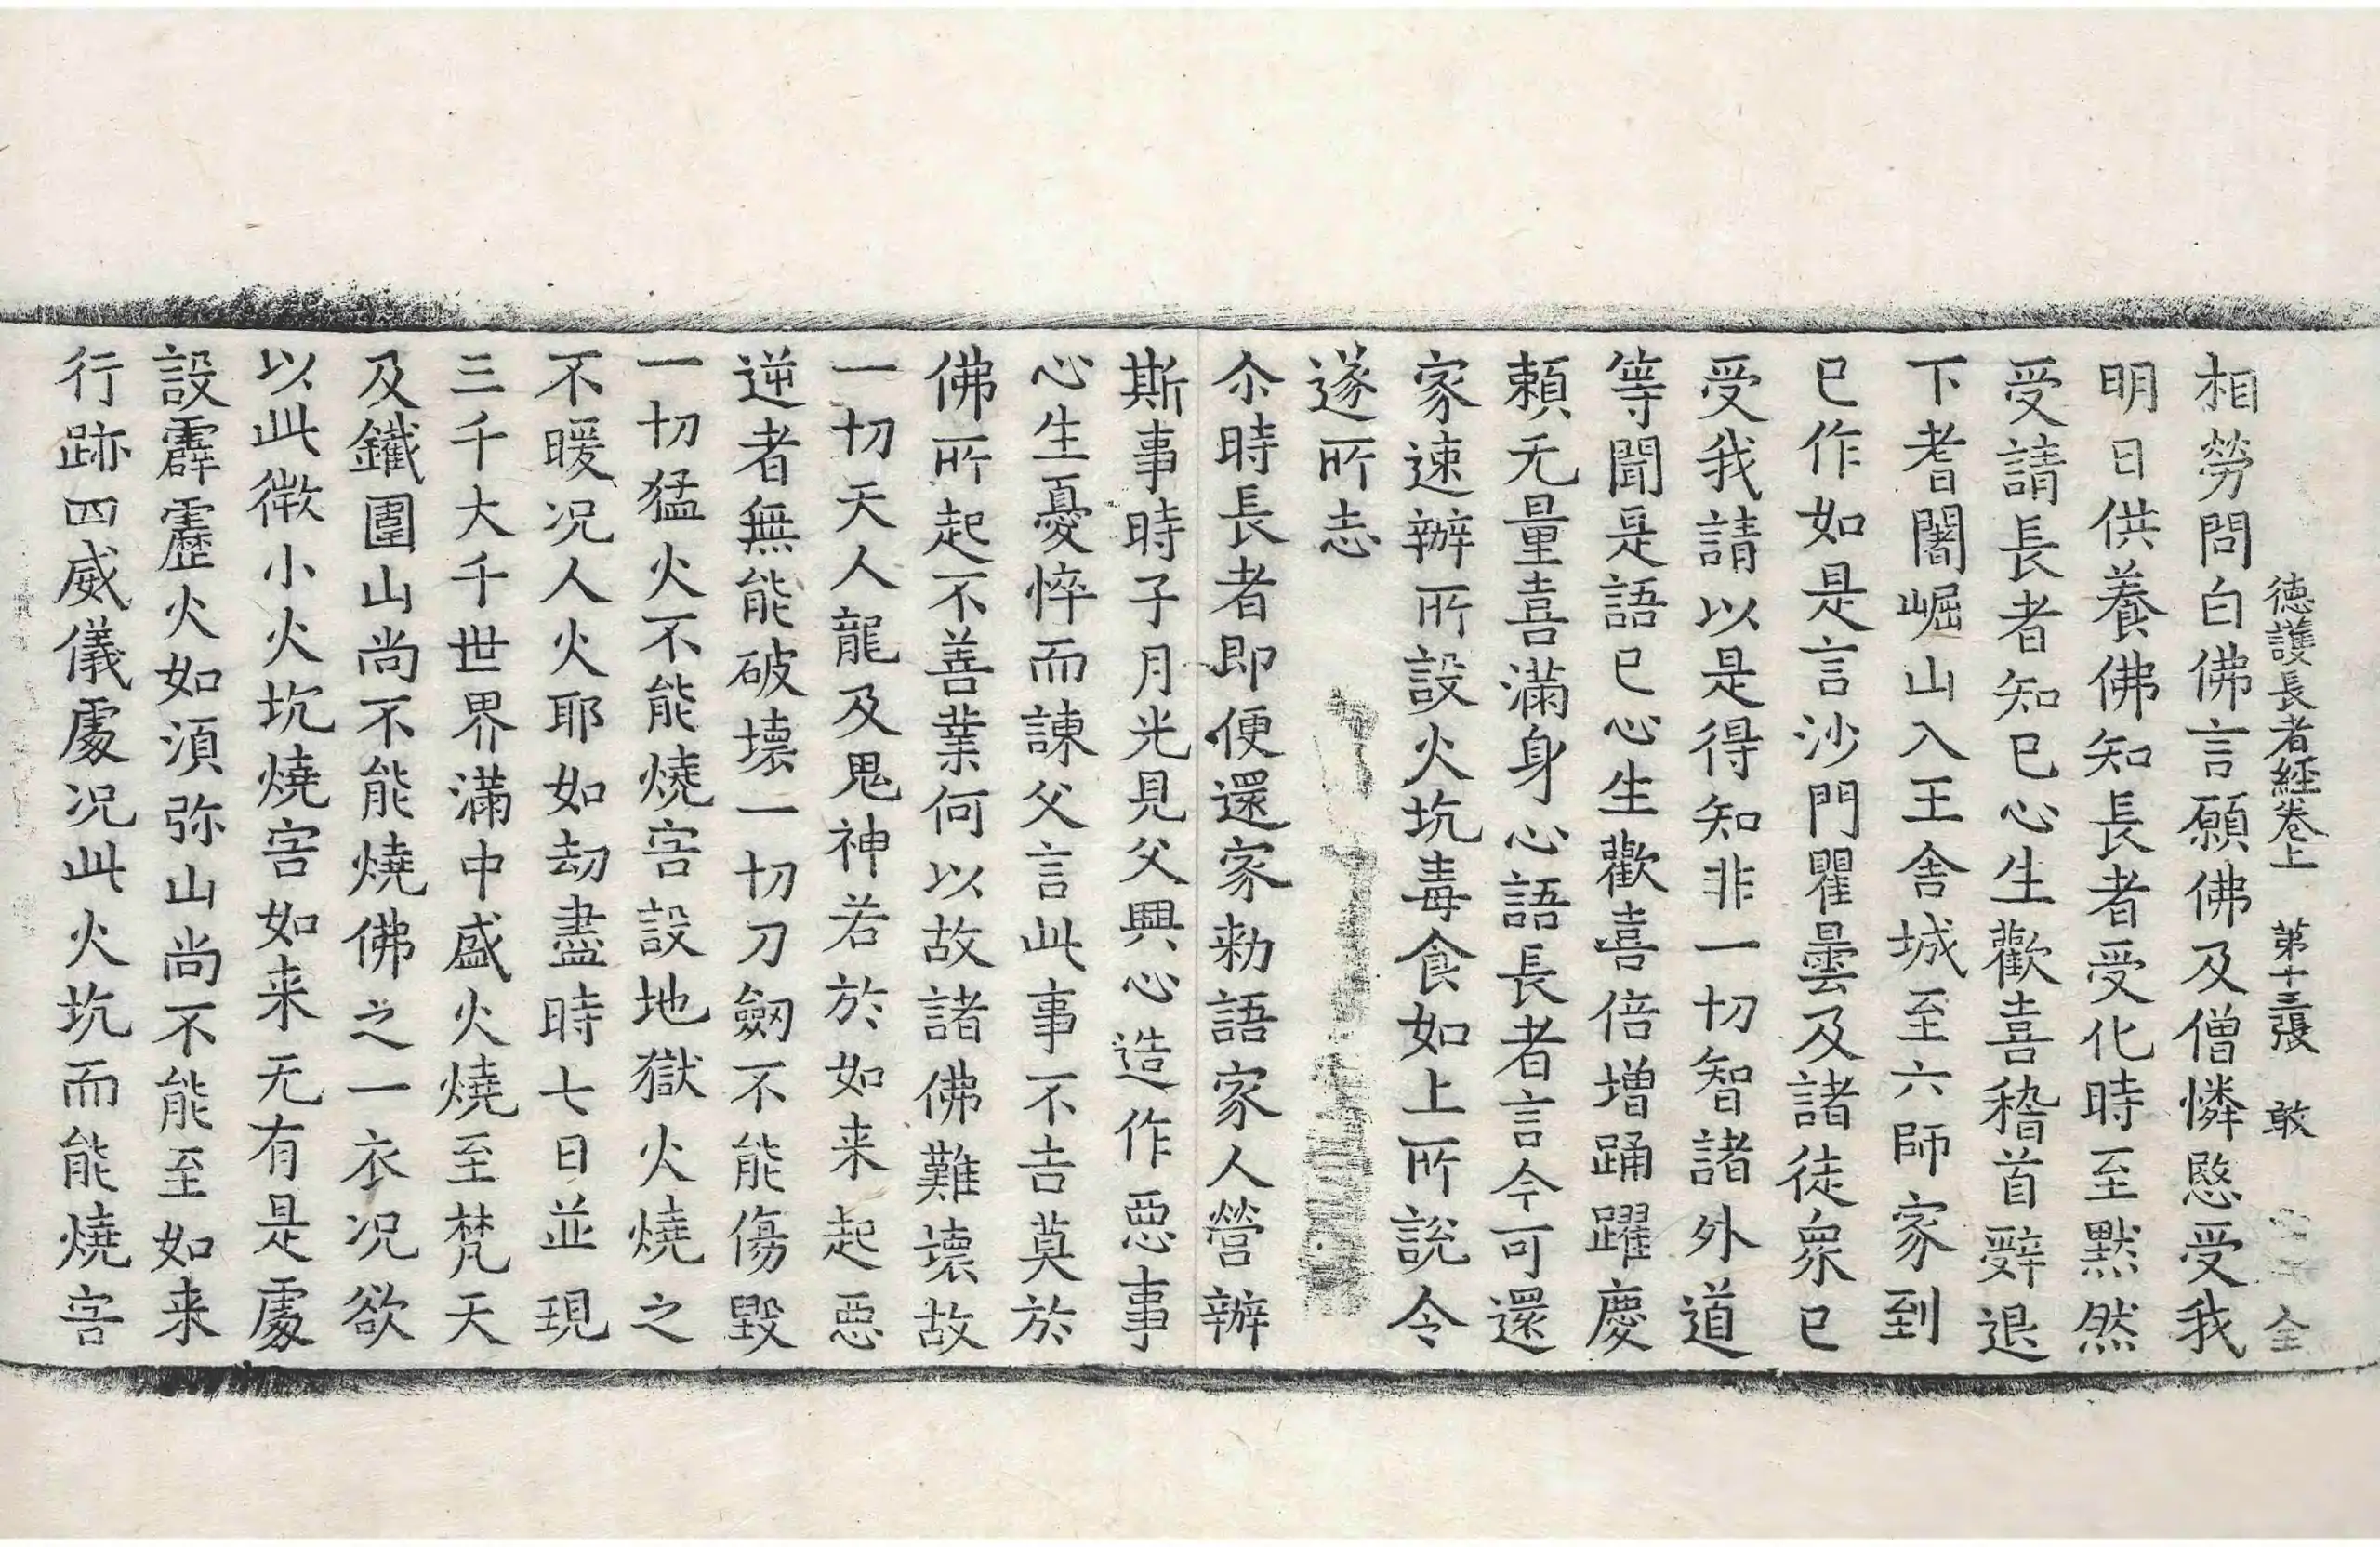 德護長者經卷上 第十三張 敢 全
相勞問白佛言願佛及僧憐愍受我
明日供養佛知長者受化時至黙然
受請長者知已心生歡喜稽首辤退
下耆闍崛山入王舍城至六師家到
已作如是言沙門瞿曇及諸徒衆已
受我請以是得知非一切智諸外道
等聞是語已心生歡喜倍增踊躍慶
頼无量喜滿身心語長者言今可還
家速辦所設火坑毒食如上所說令
遂所志
尒時長者即便還家勑語家人營辦
斯事時子月光見父興心造作惡事
心生憂悴而諫父言此事不吉莫於
佛所起不善業何以故諸佛難壞故
一切天人龍及鬼神若於如来起惡
逆者無能破壞一切刀劒不能傷毀
一切猛火不能燒害設地獄火燒之
不暖况人火耶如劫盡時七日並現
三千大千世界滿中盛火燒至梵天
及鐵圍山尚不能燒佛之一衣况欲
以此微小火坑燒害如来无有是處
設霹靂火如湏弥山尚不能至如来
行跡四威儀處况此火坑而能燒害